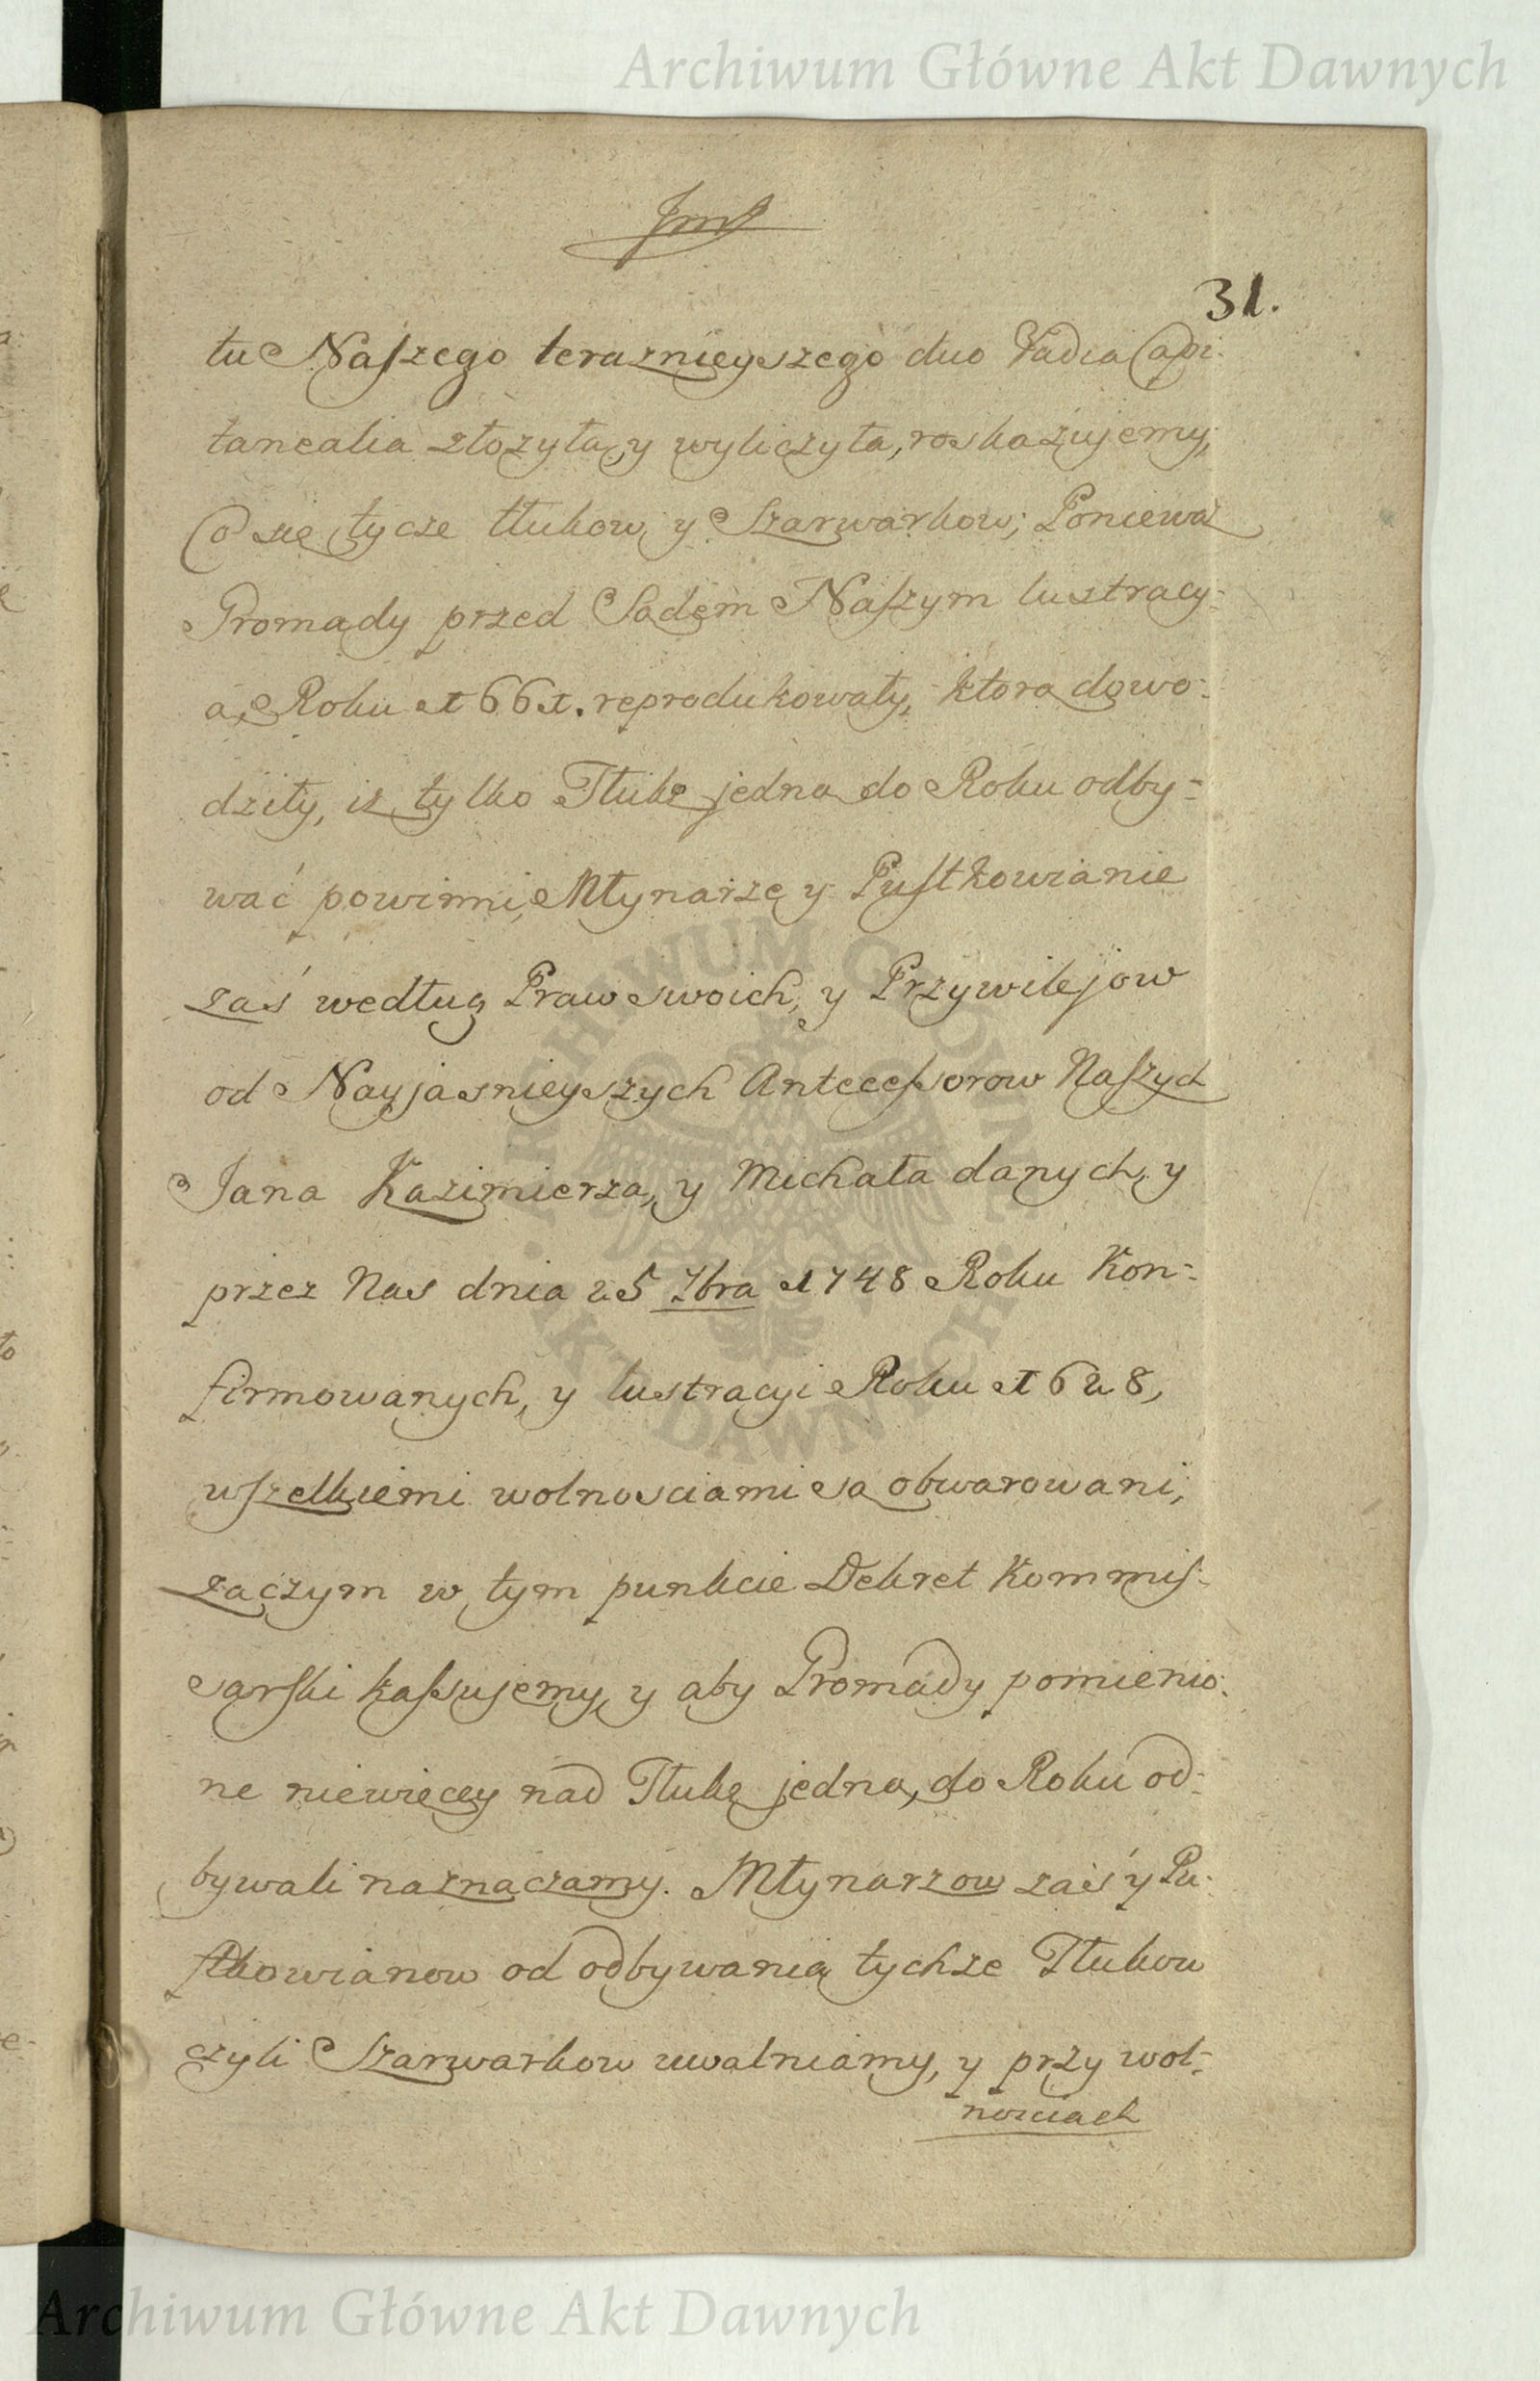 Archiwum Główne Akt Dawnych
31.
tu Naszego teraznieyszego duo Vadia Capi:
tanealia złozyła, y wyliczyła, roskazujemy,
Co się tycze tłukow, y Szarwarkow; Poniewaz
Gromady przed Sądem Naszym lustracy:
ą, Roku 1661. reprodukowały, ktorą dowo:
dziły, iz tylko Tłukę jedną do Roku odby=
wać powinni, Młynarze y Pustkowianie
zaś według Praw swoich, y Przywilejow
od Nayjasnieyszych Antecessorow Naszych
Jana Kazimierza, y Michała danych, y
przez Nas dnia 25 7bra 1748 Roku Kon=
firmowanych, y lustracyi Roku 1628,
wszelkiemi wolnosciami są obwarowani,
zaczym w tym punkcie Dekret Kommis:
sarski kassujemy, y aby Gromady pomienio:
ne niewięcey nad Tłukę jedną, do Roku od:
bywali naznaczamy. Młynarzow zaś y Pu:
stkowianow od odbywania tychze Tłukow
czyli Szarwarkow uwalniamy, y przy wol=
nosciach
ARCHIWUM GŁÓWNE AKT DAWNYCH
Archiwum Główne Akt Dawnych